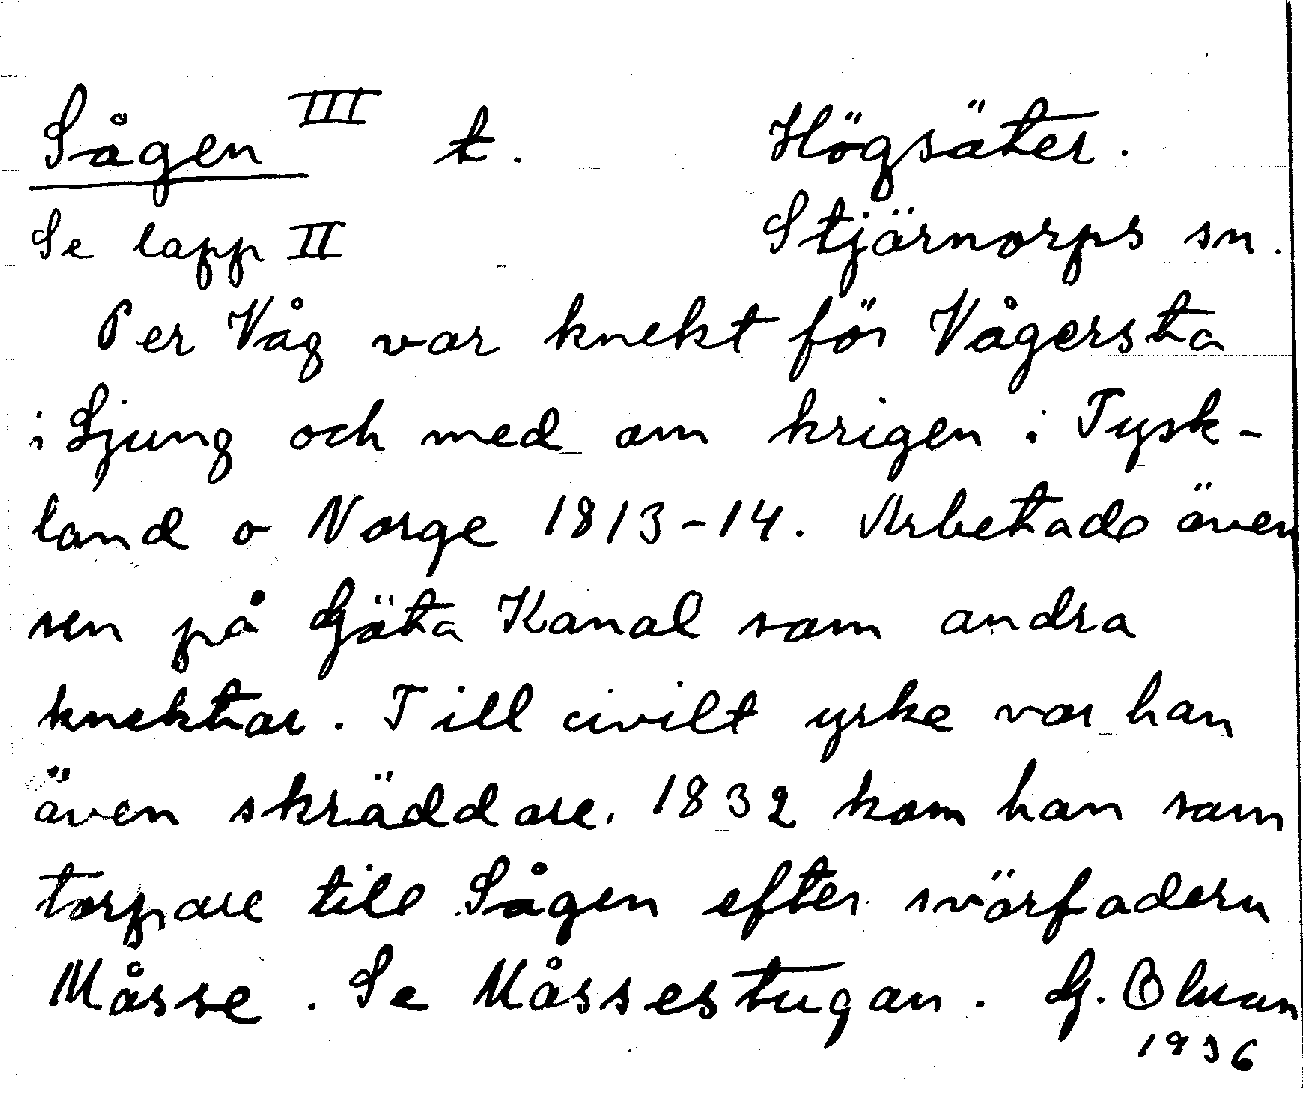 Sågen III t. Högsäter.
Se lapp II Stjärnorps sn.
Per Våg var knekt för Vågersta
i Ljung och med om krigen i Tysk-
land o Norge 1813-14. Arbetade även
sen på Göta Kanal som andra
knektar. Till civilt yrke var han
även skräddare. 1832 kom han som
torpare till Sågen efter svärfadern
Måsse. Se Måssestugan. G. Olsson
1936